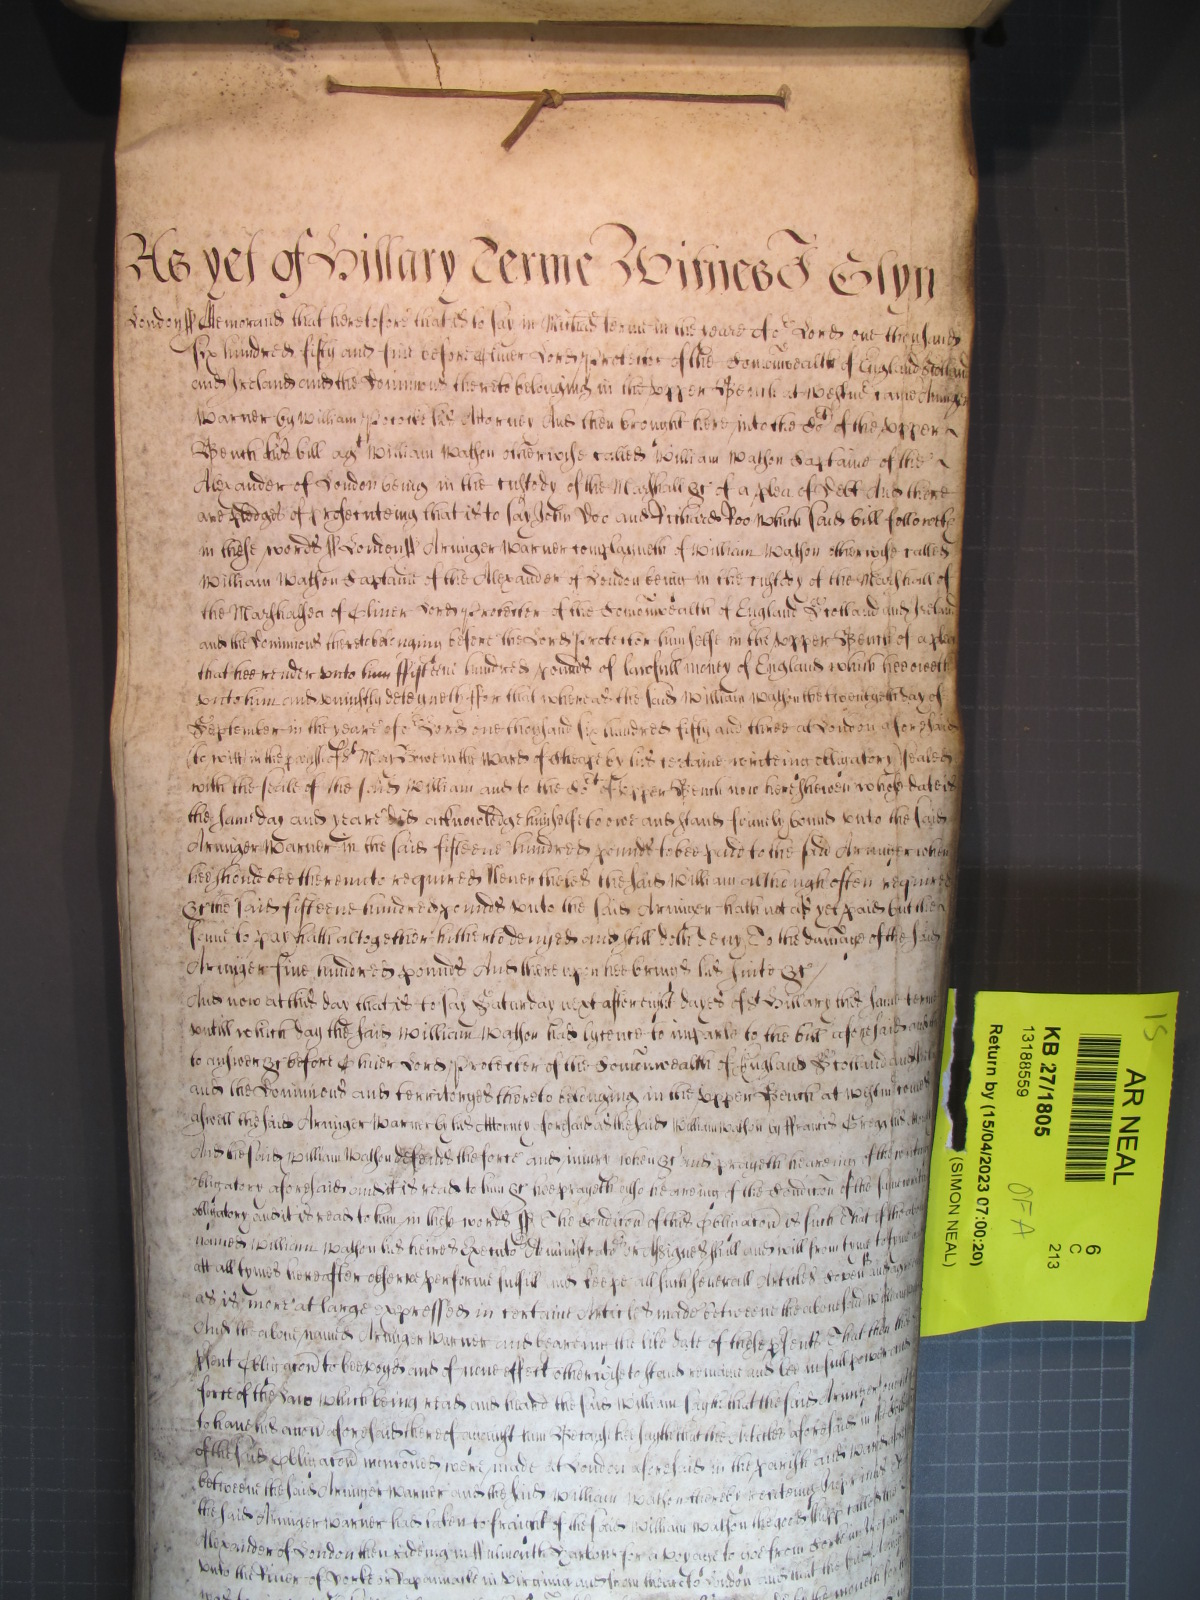 As yet of Hillary Terme Witnes J Glyn
London ss Memorand that heretofore that is to say in Michis terme in the yeare of or Lord one thousand
six hundred fifty and five before Oliver Lord Protector of the Comonwealth of England Scotland
and Ireland and the Dominions thereto belonging in the upper Bench at Westmr came Arunger
Warner by William his Attorney And then brought here into the Cot of the upper
Bench his bill agt William Wathon otherwise called William Wathon Captaine of the
Alexander of London being in the custody of the Marshall &c of a plea of Debt And there
are pledges of prosecuteing that is to say John Doo and Richard Roo Which said bill followeth
in these words ss London ss Arunger Warner complayneth of William Wathon otherwise called
William Wathon Captaine of the Alexander of London being in the custody of the Marshall of
the Marshalsea of Oliver Lord Protector of the Comonwealth of England Scotland and Ireland
and the Dominions thereto belonging before the Lord Protector himselfe in the upper Bench of a plea
that hee render unto him ffifteene hundred pounds of lawfull money of England which hee oweth
unto him and uniustly deteyneth ffor that whereas the said William Wathon the twentyeth day of
September in the yeare of or Lord one thousand six hundred fifty and three at London aforesaid
(to witt) in the parish of St Mary Bowe in the Ward of Cheape by his certaine writeing obligatory sealed
with the seale of the said William and to the Cot of upper Bench now here shewen whose date is
the same day and yeare did acknowledge himselfe to owe and stand firmely bound unto the said
Arunger Warner in the said fifteene hundred pounds to bee paid to the said Arunger when
hee should bee thereunto required Neverthelesse the said William although often required
&c the said fifteene hundred pounds unto the said Arunger hath not as yet paid but the
same to pay hath altogether hitherto denyed and still doth deny To the damage of the said
Arunger five hundred pounds And thereupon hee brings his suite &c
And now at this day that is to say Saturday next after eight dayes of St Hillary this same terme
untill which day the said William Wathon had lycence to imparle to the bill aforesaid and
to answer &c before Oliver Lord Protector of the Comonwealth of England Scotland and
and the Dominions and territoryes thereto belonging in the upper Bench at Westmr comes
aswell the said Arunger Warner by his Attorney aforesaid as the said William Wathon by ffrancis Gregg his
And the said William Wathon defends the force and iniury when &c And prayeth heareing of the
obligatory aforesaid and it is read to him &c hee prayeth also heareing of the Condition of the same
obligatory and it is read to him in these words ss The Condition of this Obligacon is such That if the above
named William Wathon his heires Executors Administrators or Assignes shall and will from tyme to tyme
att all tymes hereafter observe performe fulfill and keepe all such severall Articles
as is more at large expressed in certaine Articles made betweene the abovesaid William
And the above named Arunger Warner and beareing the like date of these psents That then this
psent Obligacon to bee voyd and of none effect otherwise to stand remaine and bee in full power and
force of the Law Which being read and heard the said William sayth that the said Arunger ought
to have his accon aforesaid thereof against him Because hee sayth that the Articles aforesaid in the
of the said Obligacon menconed were made at London aforesaid in the parish and Ward
betweene the said Arunger Warner and the said William Wathon thereby reciteing
the said Arunger Warner had taken to fraight of the said William Wathon the good shipp called the
Alexander of London then rideing in ffalmouth Harbour for a voyage to goe from
unto the River of Yorke or Rapanack in Virginia and from thence to London and that the
AR NEAL
KB 27/1805
13188559
Return by (15/04/2023 07:00:20)
(SIMON NEAL)
6
C
213
15
OFA